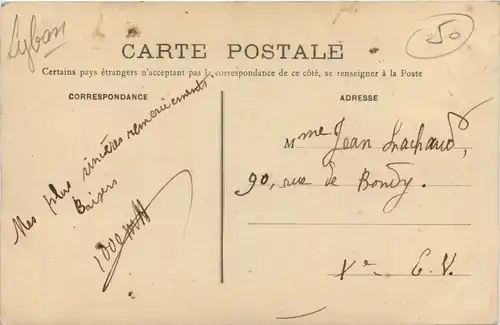 Lyban
50
CARTE POSTALE
Certains pays étrangers n'acceptant pas la correspondance de ce côté, se renseigner à la Poste
CORRESPONDANCE
Mes plus sincères remerciements
Baisers
1000
ADRESSE
Mme Jean Lachaud,
90, rue de Bondy.
Xe